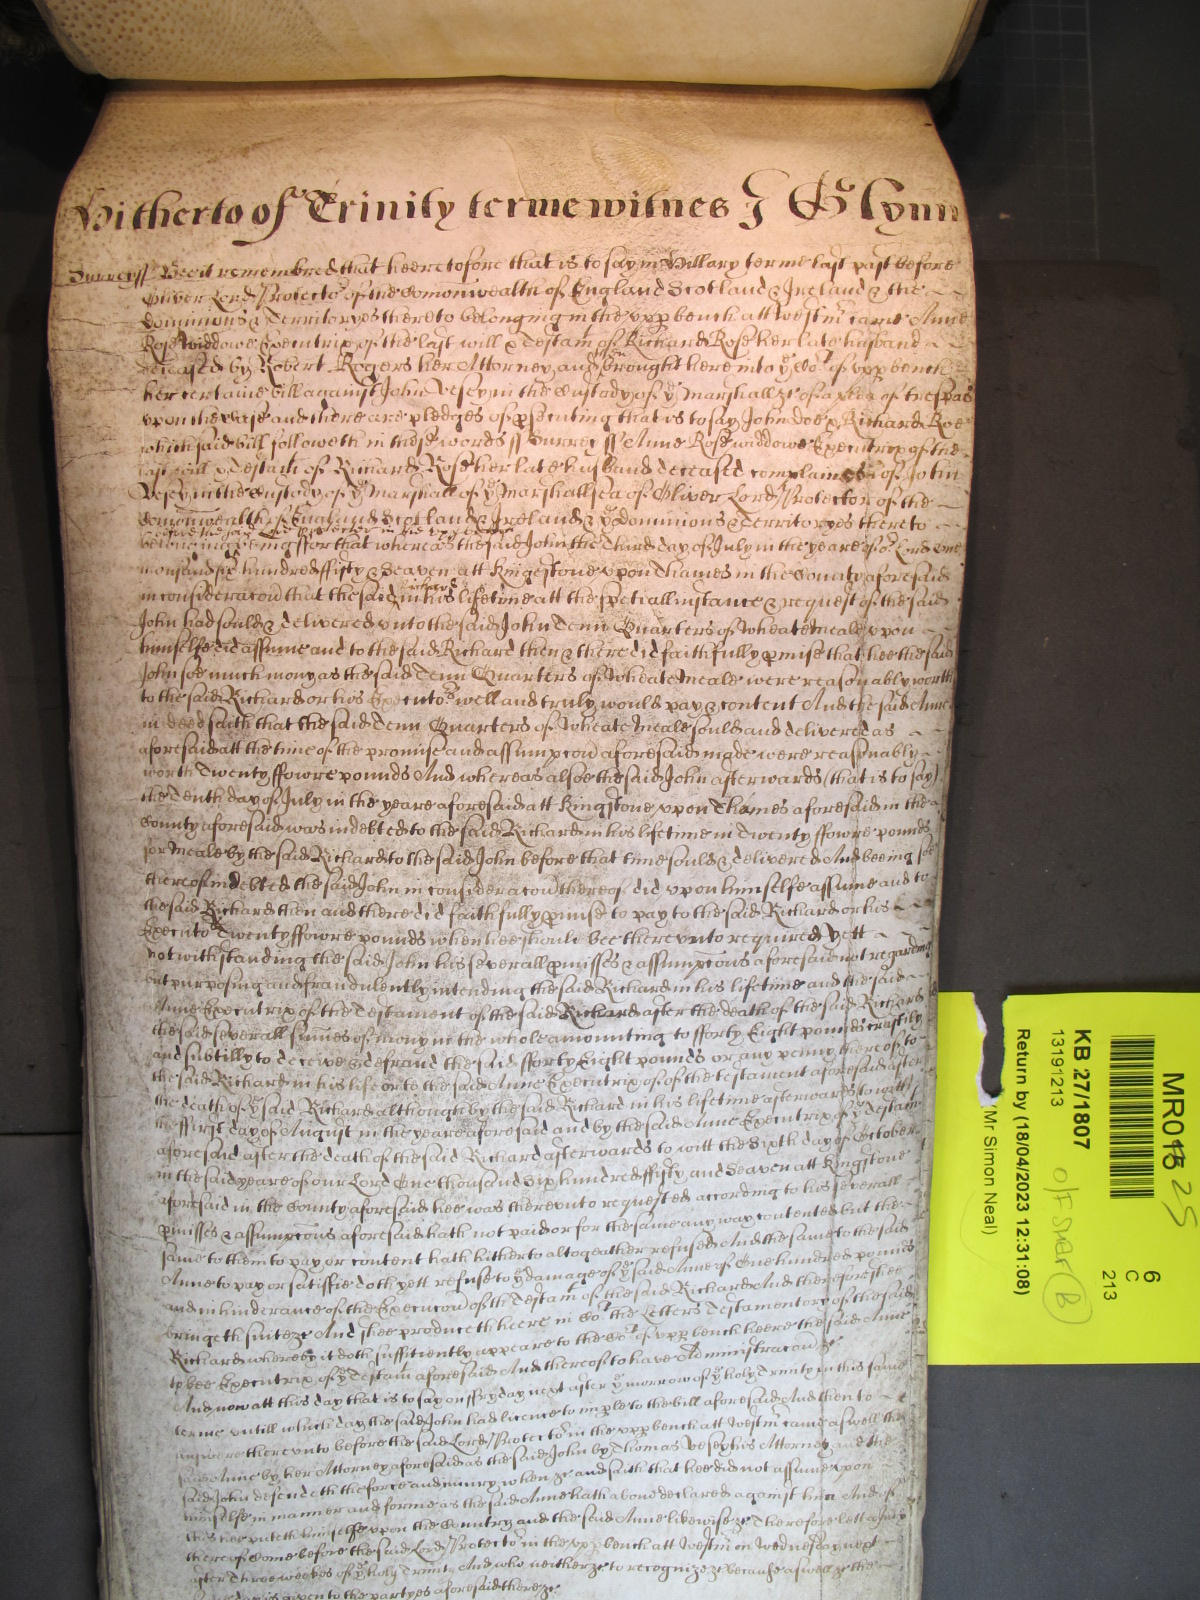 Hitherto of Trinity terme witnes J Glynn
Surrey ss Bee it remembred that heeretofore that is to say in Hillary terme last past before
Oliver Lord Protector of the Comonwealth of England Scotland & Ireland & the
dominions & Territoryes thereto belonging in the upp bench att Westm came Anne
Rose widdowe Executrix of the last will & Testam of Richard Rose her late husband
deceased by Robert Rogers her Attorney and brought here into ye Cort of upp bench
her certaine bill against John Vesey in the Custody of ye Marshall &c of a plea of trespas
upon the Case and there are pledges of psecuting that is to say John Doe & Richard Roe
which said bill followeth in these words ss Surrey ss Anne Rose widdowe Executrix of the
last will & Testam of Richard Rose her late husband deceased complaines of John
Vesey in the Custody of ye Marshall of ye Marshallsea of Oliver Lord Protector of the
Comonwealth of England Scotland & Ireland & ye dominions & Territoryes thereto
before the said Lord Protector in the upp bench
belonging being ffor that whereas the said John the Third day of July in the yeare of or Lord One
thousand six hundred ffifty & Seaven att Kingstone upon Thames in the County aforesaid
in consideracon that the said Richard in his lifetime att the spetiall instance & request of the said
John had sould & delivered unto the said John Tenn Quarters of Wheate Meale upon
himselfe did assume and to the said Richard then & there did faithfully pmise that hee the said
John soe much mony as the said Tenn Quarters of Wheate Meale were reasonably worth
to the said Richard or his Executors well and truly would pay & content And the said Anne
in deed saith that the said Tenn Quarters of Wheate Meale sould and delivered as
aforesaid att the time of the promise and assumpcon aforesaid made were reasonably
worth Twenty ffowre pounds And whereas alsoe the said John afterwards (that is to say)
the Tenth day of July in the yeare aforesaid att Kingstone upon Thames aforesaid in the
County aforesaid was indebted to the said Richard in his lifetime in Twenty ffowre pounds
for Meale by the said Richard to the said John before that time sould & delivered And beeing soe
thereof indebted the said John in consideracon thereof did upon himselfe assume and to
the said Richard then and there did faithfully pmise to pay to the said Richard or his
Executors Twenty ffowre pounds when hee should bee thereunto required Yett
notwithstanding the said John his severall pmisses & assumpcons aforesaid not regarding
but purposing and fraudulently intending the said Richard in his lifetime and the said
Anne Executrix of the Testament of the said Richard after the death of the said Richard
the said severall sumes of mony in the whole amounting to fforty Eight pounds craftily
and subtilly to deceive & defraud the said fforty Eight pounds or any penny thereof to
the said Richard in his life or to the said Anne Executrix of of the testament aforesaid after
the death of ye said Richard although by the said Richard in his lifetime afterwards to witt
the ffirst day of August in the yeare aforesaid and by the said Anne Executrix of ye Testam
aforesaid after the death of the said Richard afterwards to witt the Sixth day of October
in the said yeare of our Lord One thousand Six hundred ffifty and Seaven att Kingstone
aforesaid in the County aforesaid hee was thereunto requested according to his severall
pmisses & assumpcons aforesaid hath not paid or for the same any way contented but the
same to them to pay or content hath hitherto altogeather refused And the same to the said
Anne to pay or satisfie doth yett refuse to ye damage of ye said Anne of One hundred pounds
and in hinderance of the Execucon of th Testam of the said Richard And therefore shee
bringeth suite &c And shee produceth heere in Cort the Letters Testamentory of the said
Richard whereby it doth sufficiently appeare to the Cort of upp bench heere the said Anne
to bee Executrix of ye Testam aforesaid And thereof to have Administracon &c
And now att this day that is to say on ffryday next after ye morrow of ye holy Trinity in this same
terme untill which day the said John had licence to imple to the bill aforesaid And then to
answere thereunto before the said Lord Protector in the upp bench att Westm came aswell the
said Anne by her Attorney aforesaid as the said John by Thomas Vesey his Attorney and the
said John defendeth the force and iniury when &c and saith that hee did not assume upon
himselfe in manner and forme as the said Anne hath above declared against him And of
this hee putteth himselfe upon the Country and the said Anne likewise &c Therefore lett a Jury
thereof come before the said Lord Protector in the upp bench att Westm on Wednesday next
after Three weekes of ye holy Trinity And who neither &c to recognize &c because aswell &c the
same day is given to the partyes aforesaid there &c
MR01 25
6
C
213
KB 27/1807
13191213
O/F Shelf (B)
Return by (18/04/2023 12:31:08)
(Mr Simon Neal)